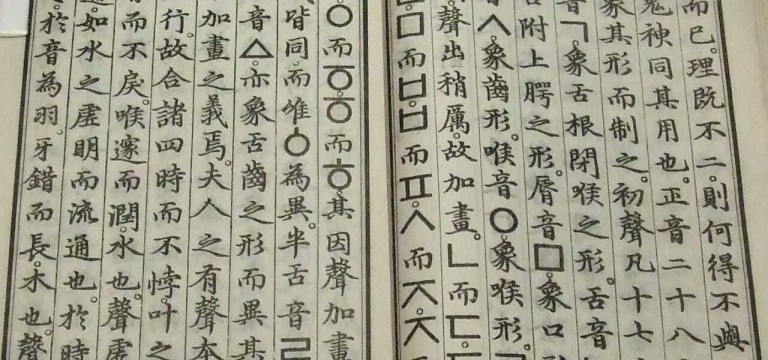 而已。理既不二。則何得不與
鬼神同其用也。正音二十八
象其形而制之。初聲凡十七
音ㄱ。象舌根閉喉之形。舌音
附上腭之形。脣音ㅁ。象口
音ㅅ。象齒形。喉音ㅇ。象喉形。
聲出稍厲。故加畫。ㄴ而ㄷ。
ㅁ而ㅂ。ㅂ而ㅍ。ㅅ而ㅈ。ㅈ
ㅇ而ㆆ。ㆆ而ㅎ。其因聲加畫
皆同。而唯ㆁ為異。半舌音ㄹ
音ㅿ。亦象舌齒之形而異其
加畫之義焉。夫人之有聲本
行。故合諸四時而不悖。叶之
而不戾。喉邃而潤。水也。聲虛
如水之虛明而流通也。於時
於音為羽。牙錯而長。木也。聲